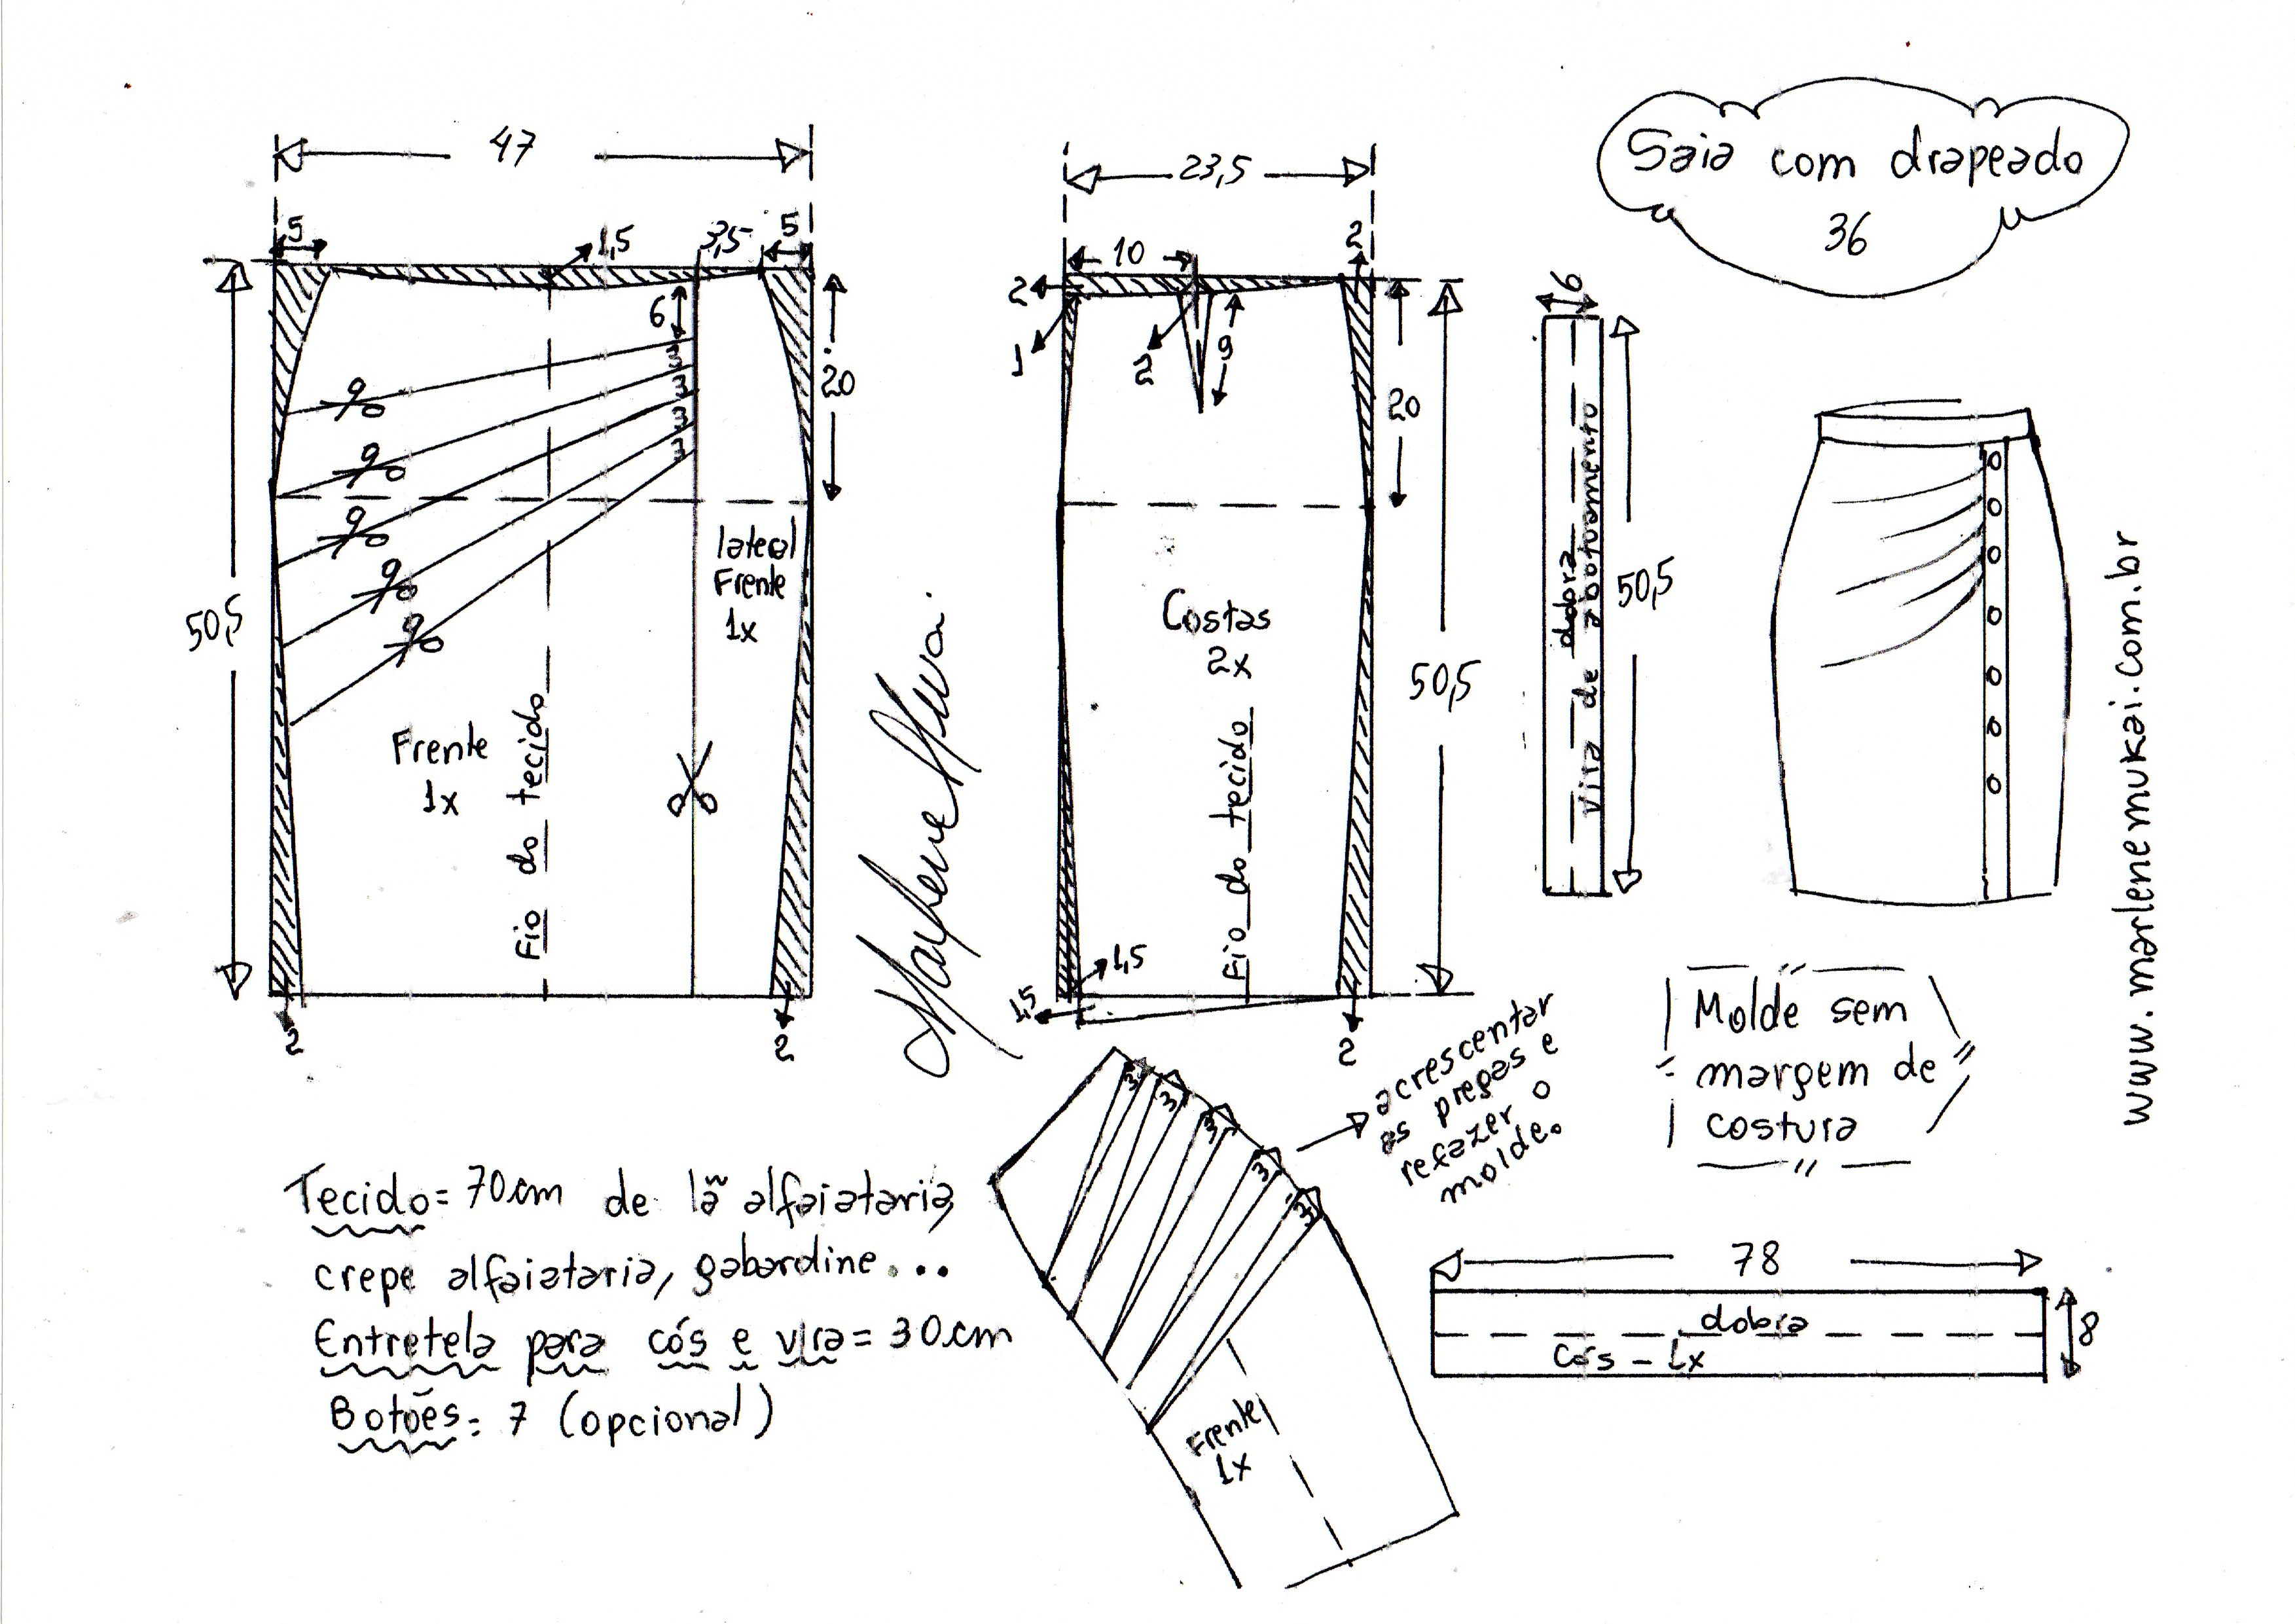 Saia com drapeado
36
47
5
1,5
3,5
5
6
3
3
3
3
20
50,5
lateral
Frente
1x
Frente
1x
Fio do tecido
2
2
23,5
10
2
2
1
2
9
20
Costas
2x
50,5
Fio do tecido
1,5
1,5
2
6
dobra
vira de abotoamento
50,5
www.marlenemukai.com.br
Molde sem
margem de
costura
acrescentar
as pregas e
refazer o
molde.
3
3
3
3
3
Frente
1x
Tecido = 70cm de lã alfaiataria,
crepe alfaiataria, gabardine...
Entretela para cós e vira = 30cm
Botões = 7 (opcional)
78
dobra
Cós - 1x
8